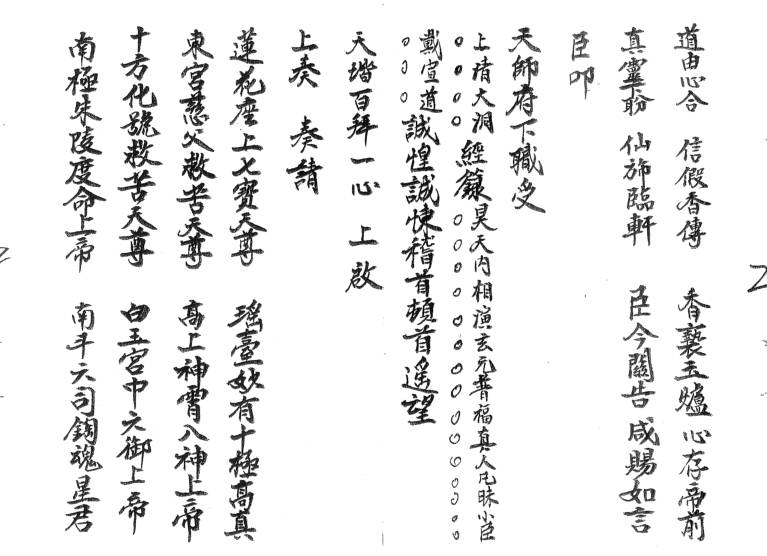 道由心合　信假香傳　香爇玉爐　心存帝前
真靈下盼　仙斾臨軒　臣今關告　咸賜如言
臣叩
天師府下職受
上清大洞經籙昊天內相演玄元普福真人凡昧小臣
。。。。。。。。。。。。。。。。。
戴宣道誠惶誠悚稽首頓首遙望
。。。
天堦百拜一心　上啟
上奏　奏請
蓮花座上七寶天尊　瑤臺妙有十極高真
東宮慈父救苦天尊　高上神霄八神上帝
十方化號救苦天尊　白玉宮中六御上帝
南極朱陵度命上帝　南斗六司鈎魂星君